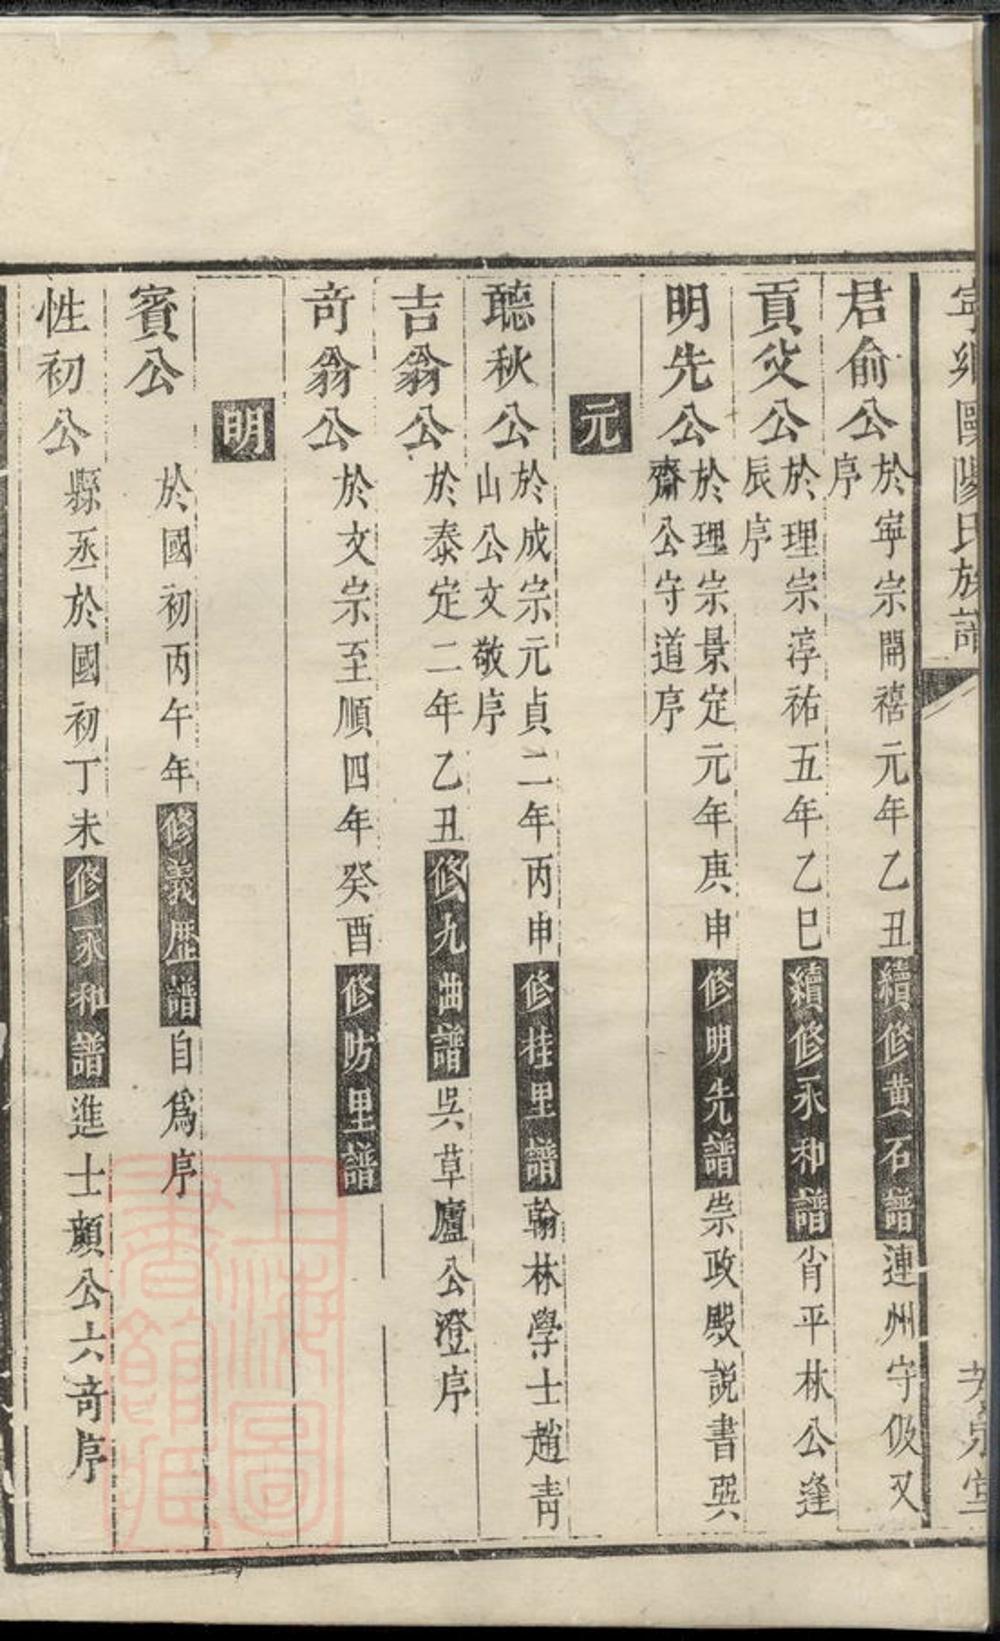 寧鄉歐陽氏族譜
君俞公於寧宗開禧元年乙丑續修黄石譜連州守伋又
序
貢父公於理宗淳祐五年乙巳續修永和譜肖平林公逢
辰序
明先公於理宗景定元年庚申修明先譜崇政殿説書巽
齋公守道序
元
聽秋公於成宗元貞二年丙申修桂里譜翰林學士趙青
山公文敬序
吉翁公於泰定二年乙丑修九曲譜吳草廬公澄序
竒翁公於文宗至順四年癸酉修防里譜
明
賓公於國初丙午年修義歷譜自爲序
性初公縣丞於國初丁未修永和譜進士顔公六竒序
上海圖書館藏